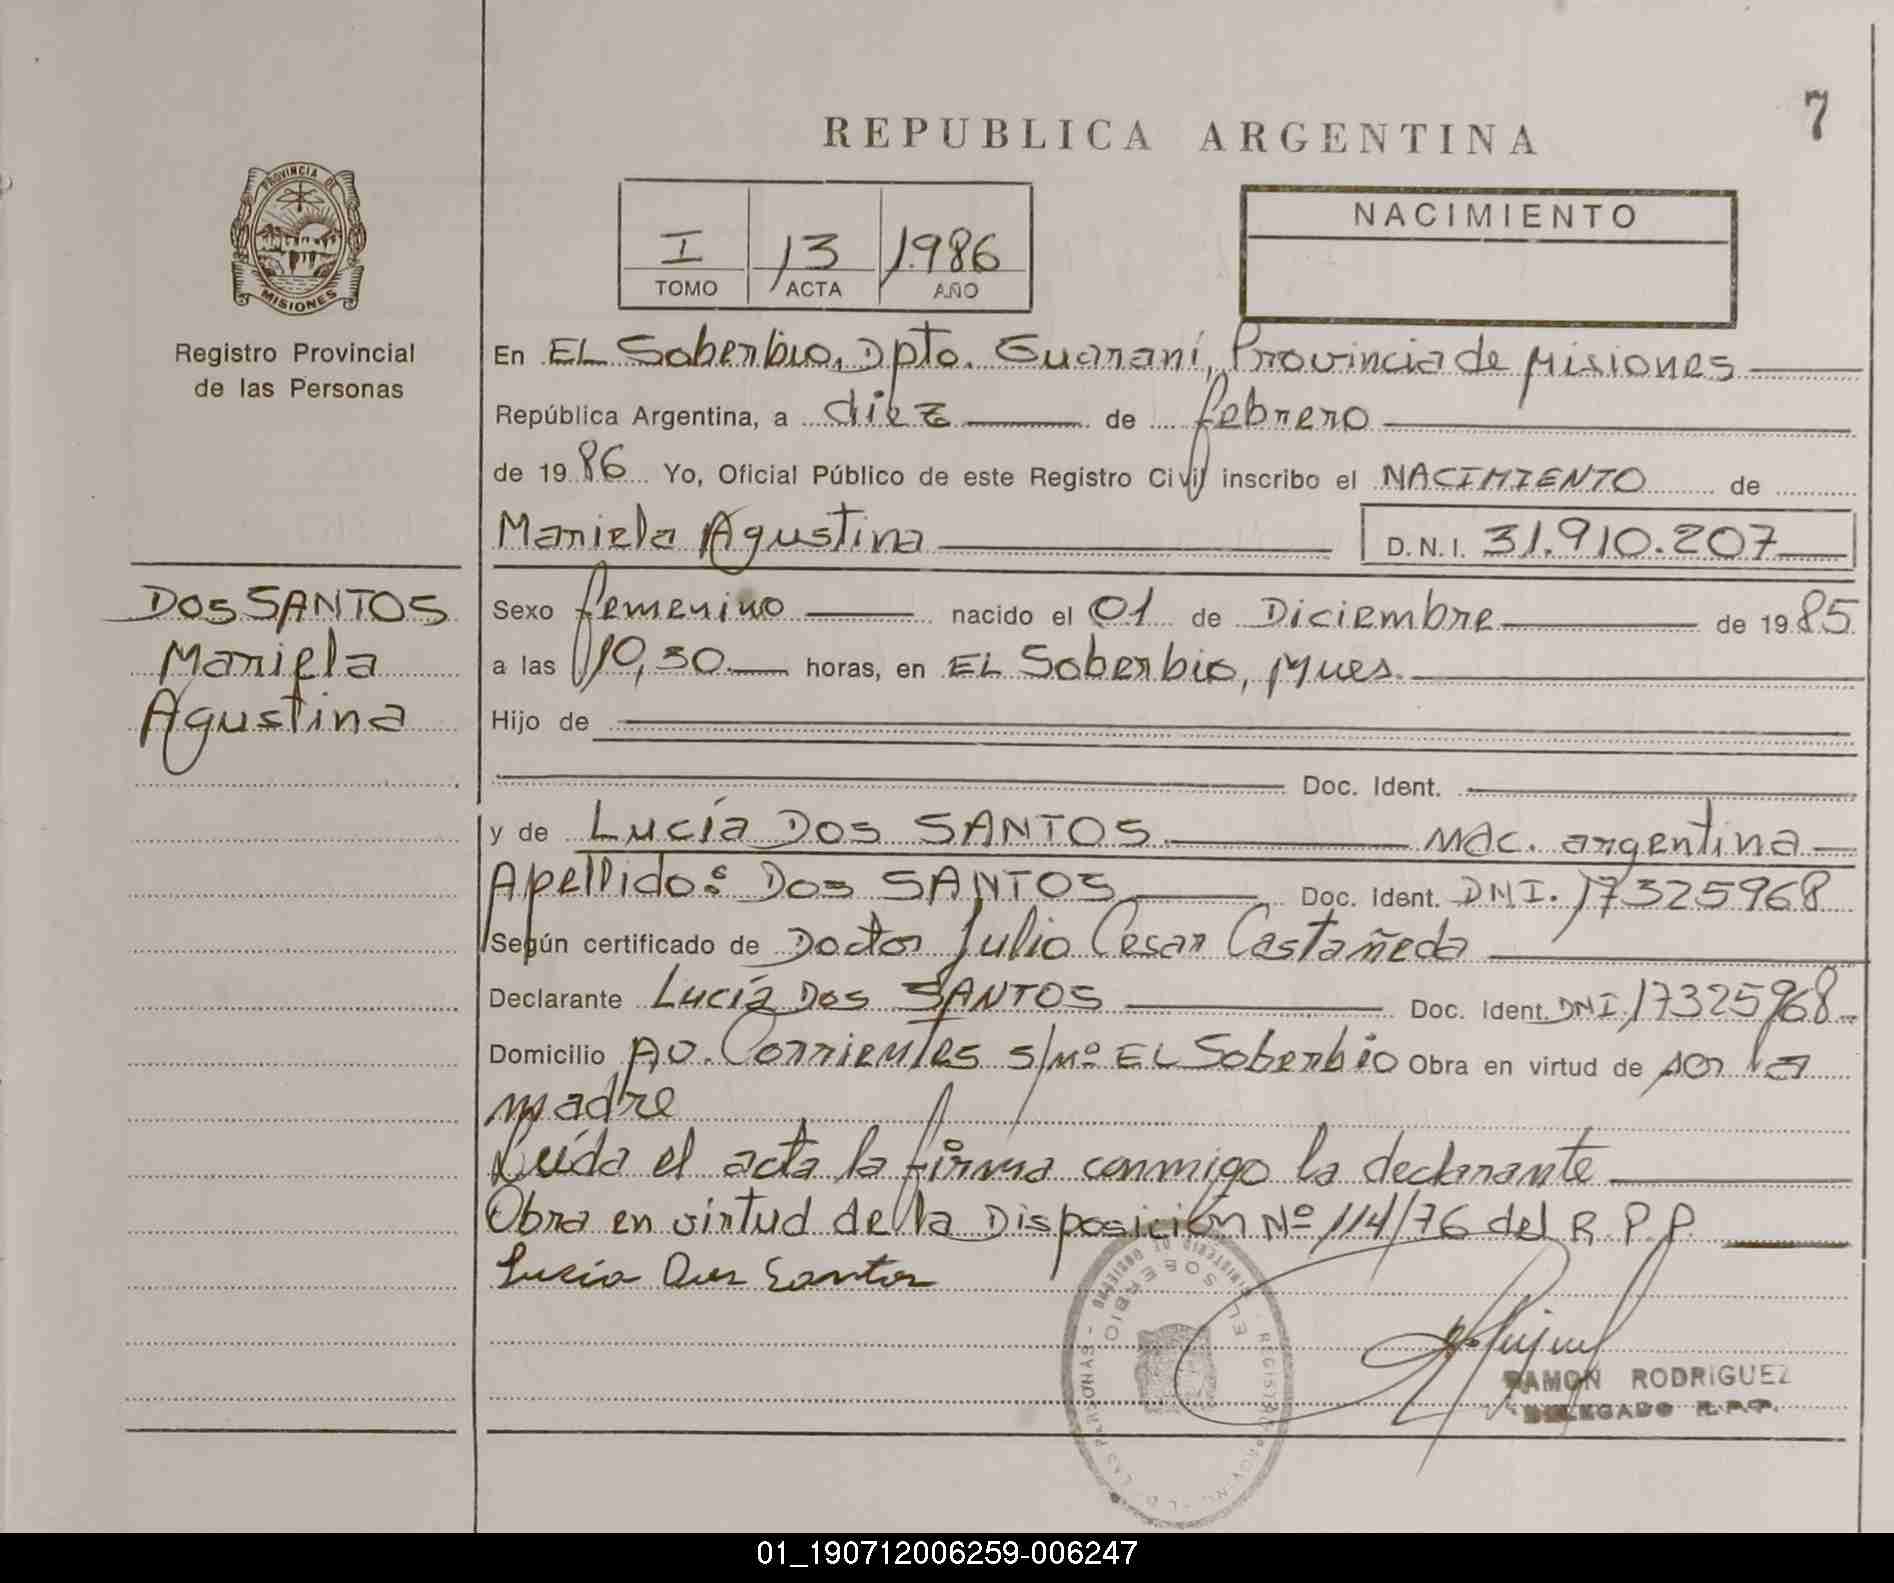 7
REPUBLICA ARGENTINA
PROVINCIA DE
MISIONES
Registro Provincial
de las Personas
I 13 1.986
TOMO ACTA AÑO
NACIMIENTO
En EL Soberbio, Dpto. Guaraní, Provincia de Misiones
República Argentina, a diez de febrero
de 1986 Yo, Oficial Público de este Registro Civil inscribo el NACIMIENTO de
Mariela Agustina D.N.I. 31.910.207
DOS SANTOS
Mariela
Agustina
Sexo femenino nacido el 01 de Diciembre de 1985
a las 10,30 horas, en EL Soberbio, Mnes.
Hijo de
Doc. Ident.
y de Lucía DOS SANTOS nac. argentina
Apellido: DOS SANTOS Doc. Ident. DNI. 17325968
Según certificado de Doctor Julio Cesar Castañeda
Declarante Lucía DOS SANTOS Doc. Ident. DNI 17325968
Domicilio AV. Corrientes s/nº EL Soberbio Obra en virtud de ser la
madre
Leída el acta la firma conmigo la declarante
Obra en virtud de la Disposición Nº 114/76 del R.P.P.
Lucía Dos Santos
EL SOBERBIO
RAMON RODRIGUEZ
DELEGADO R.P.P.
01_190712006259-006247